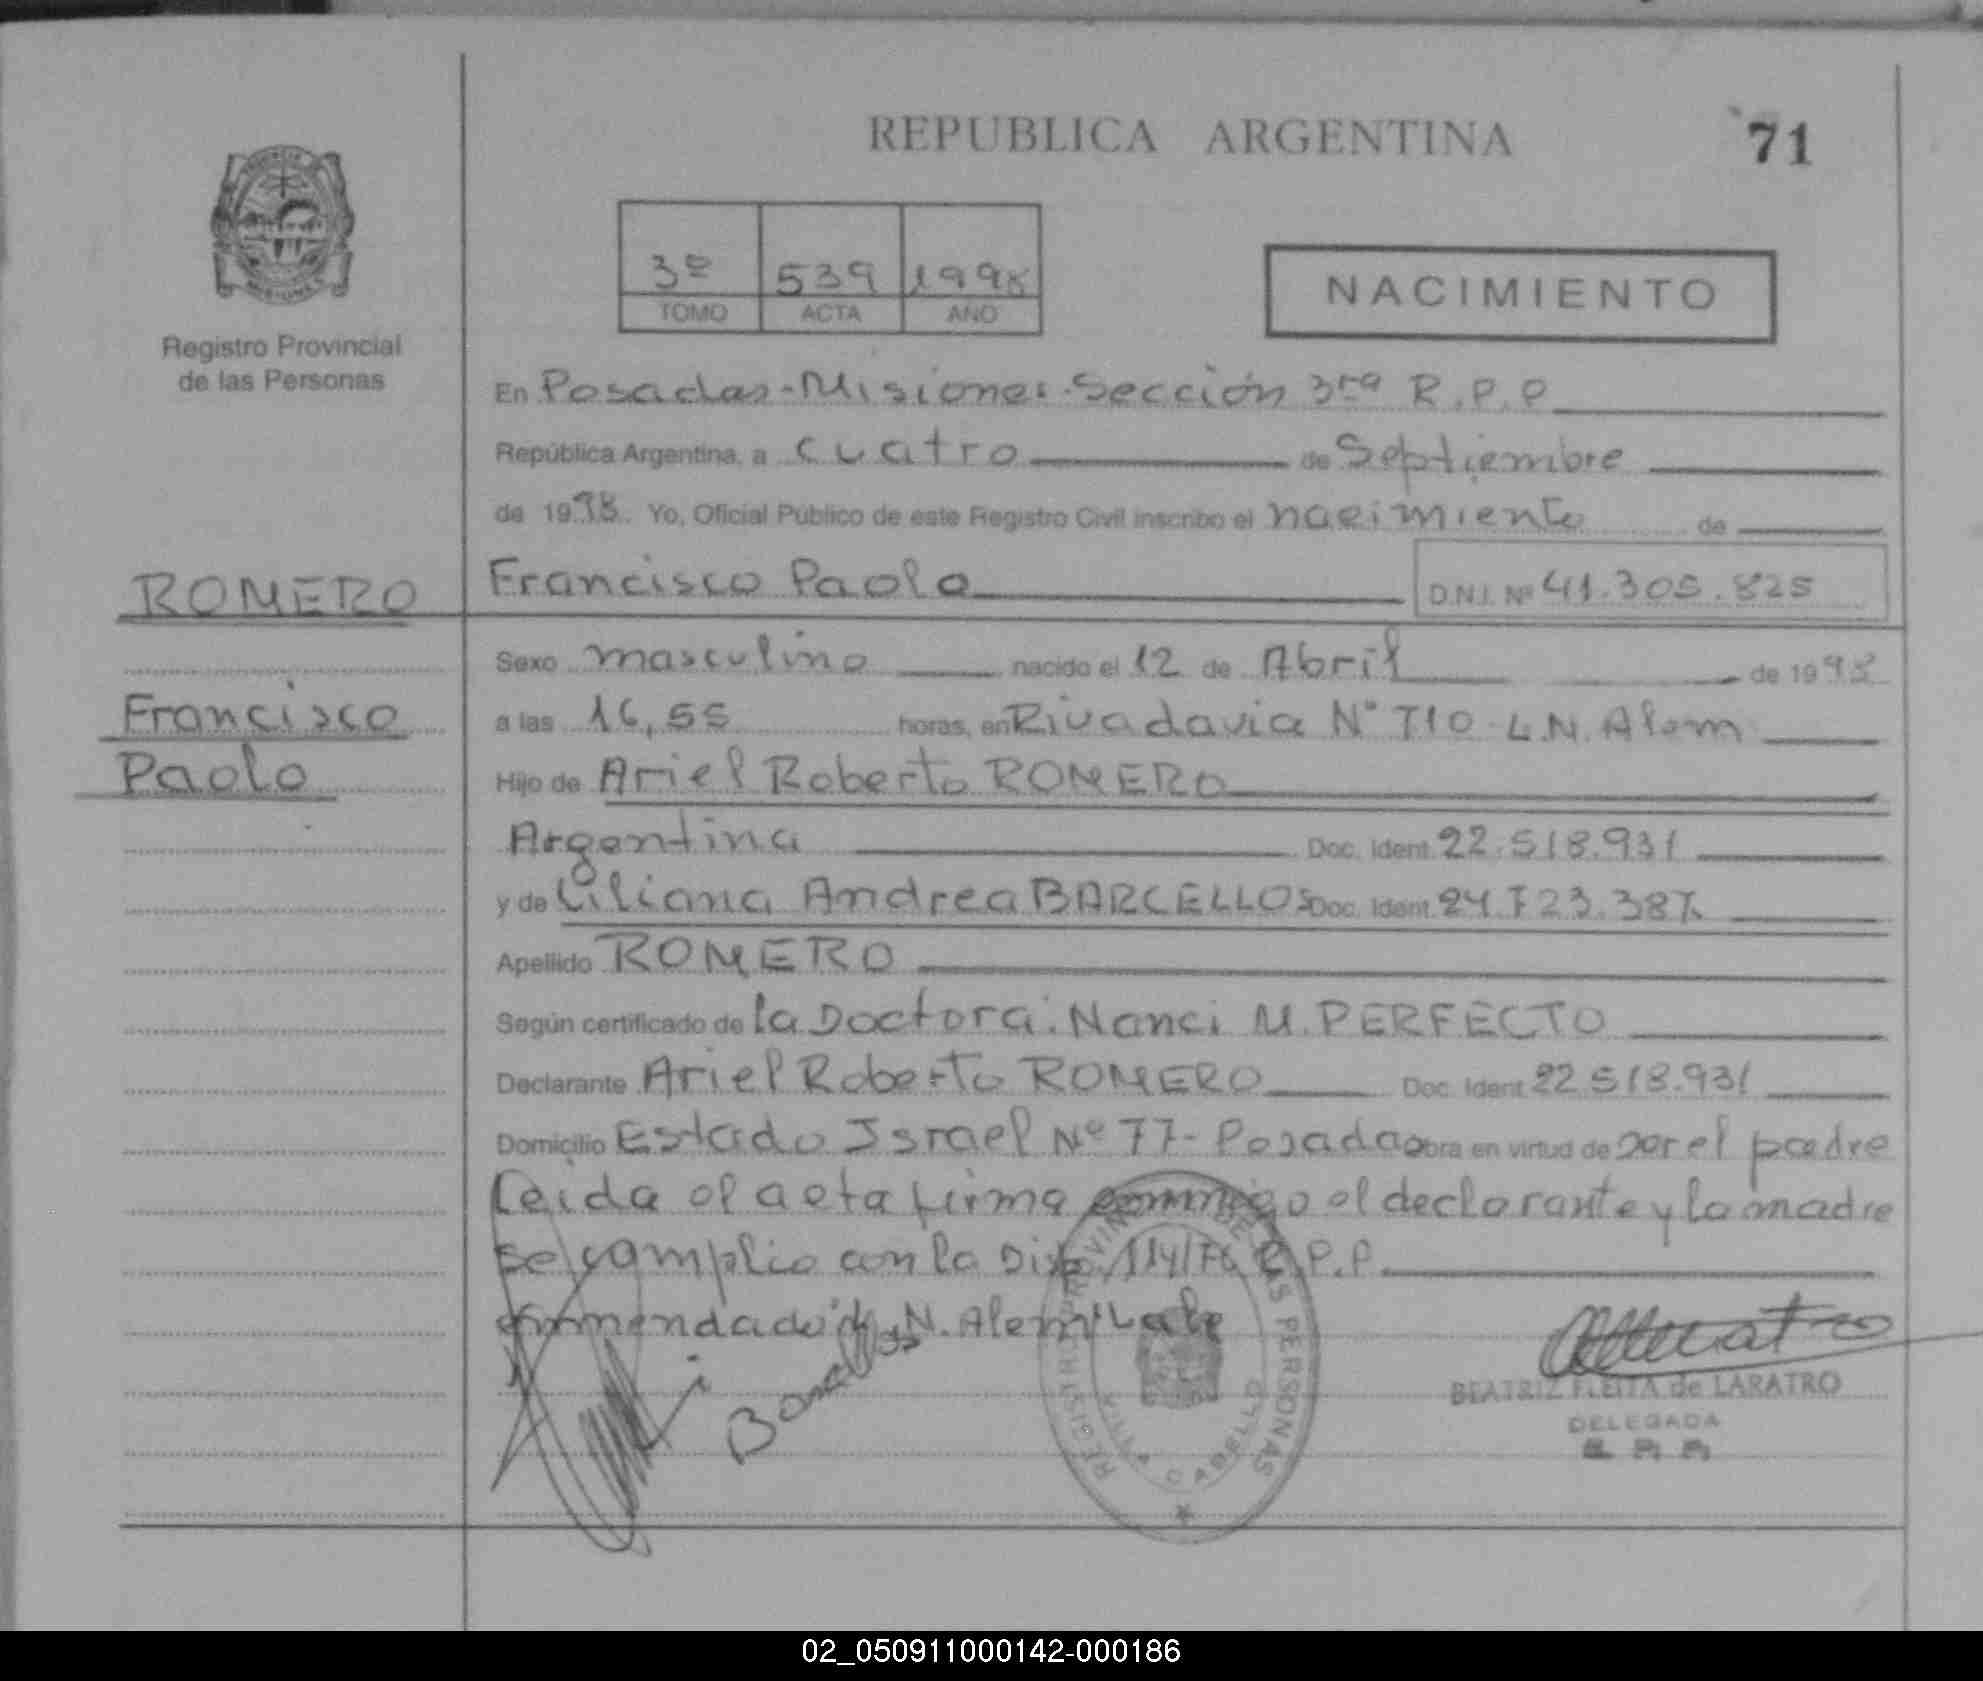 REPUBLICA ARGENTINA
71
3º 539 1998
TOMO ACTA AÑO
NACIMIENTO
Registro Provincial
de las Personas
En Posadas-Misiones-Sección 3ra R.P.P
República Argentina, a cuatro de Septiembre
de 1998. Yo, Oficial Público de este Registro Civil inscribo el nacimiento de
ROMERO
Francisco
Paolo
Francisco Paolo D.N.I. Nº 41.305.825
Sexo masculino nacido el 12 de Abril de 1998
a las 16,55 horas, en Rivadavia Nº 710 L.N. Alem
Hijo de Ariel Roberto ROMERO
Argentina Doc. Ident. 22.518.931
y de Liliana Andrea BARCELLOS Doc. Ident. 24.723.387
Apellido ROMERO
Según certificado de la Doctora. Nanci M. PERFECTO
Declarante Ariel Roberto ROMERO Doc. Ident. 22.518.931
Domicilio Estado Israel Nº 77- Posadas obra en virtud de ser el padre
Leida el acta firma conmigo el declarante y la madre
se complio con la Disp. 114/76 R.P.P.
emmendado N. Alem Vale
REGISTRO PROVINCIAL DE LAS PERSONAS
VILLA CABELLO
BEATRIZ FLEITA de LARATRO
DELEGADA
02_050911000142-000186